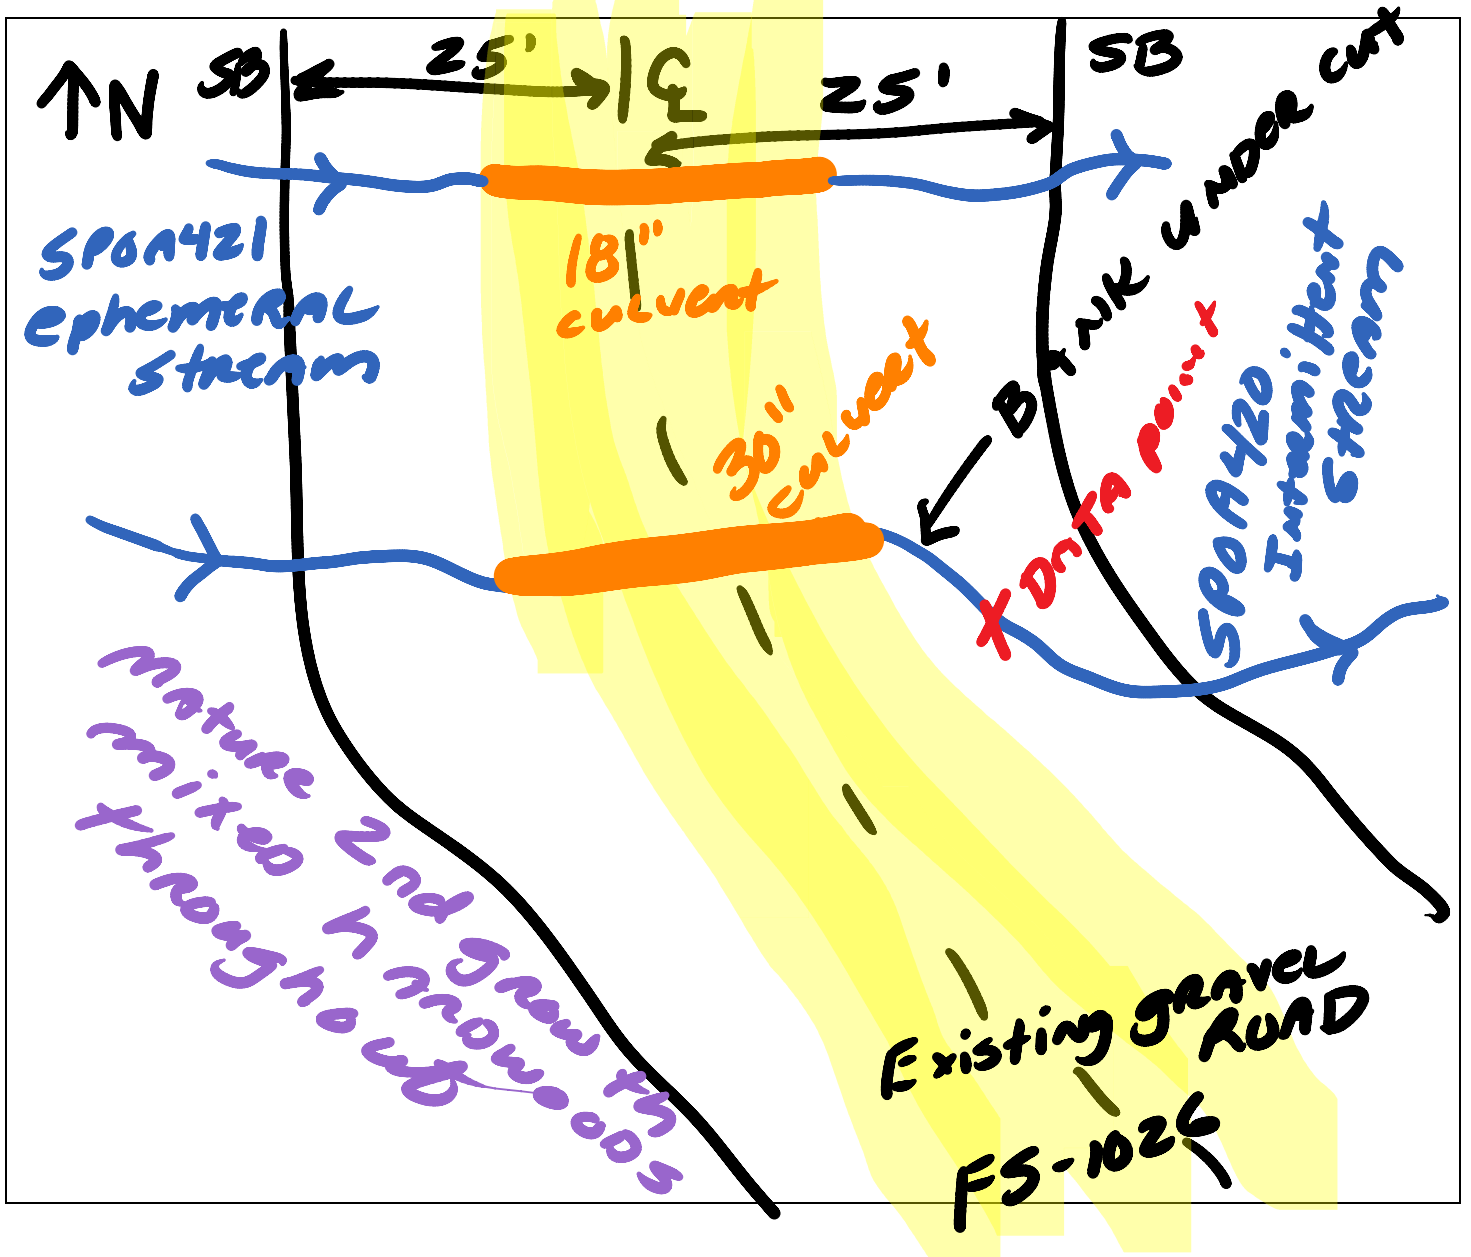 ↑N
SB
25'
℄
25'
SB
SPOA421
ephemeral
stream
18"
culvert
30"
culvert
Bank undercut
X Data point
SPOA420
Intermittent
Stream
mature 2nd growth
mixed hardwoods
throughout
Existing gravel
ROAD
FS-1026